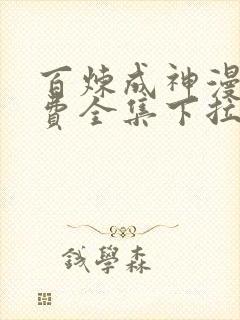 百炼成神漫
费全集下拉
钱學森